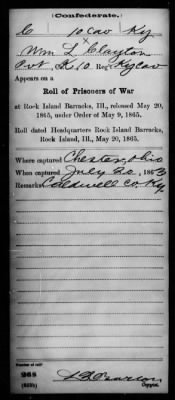 (Confederate.)
C 10 Cav Ky
x
Wm L Clayton
Pvt, Co. 10 Reg Ky Cav
Appears on a
Roll of Prisoners of War
at Rock Island Barracks, Ill., released May 20,
1865, under Order of May 9, 1865.
Roll dated Headquarters Rock Island Barracks,
Rock Island, Ill., May 20, 1865.
Where captured Chester, Ohio
When captured July 20, 1863
Remarks Caldwell Co Ky
Number of roll:
268
(635b)
Copyist.